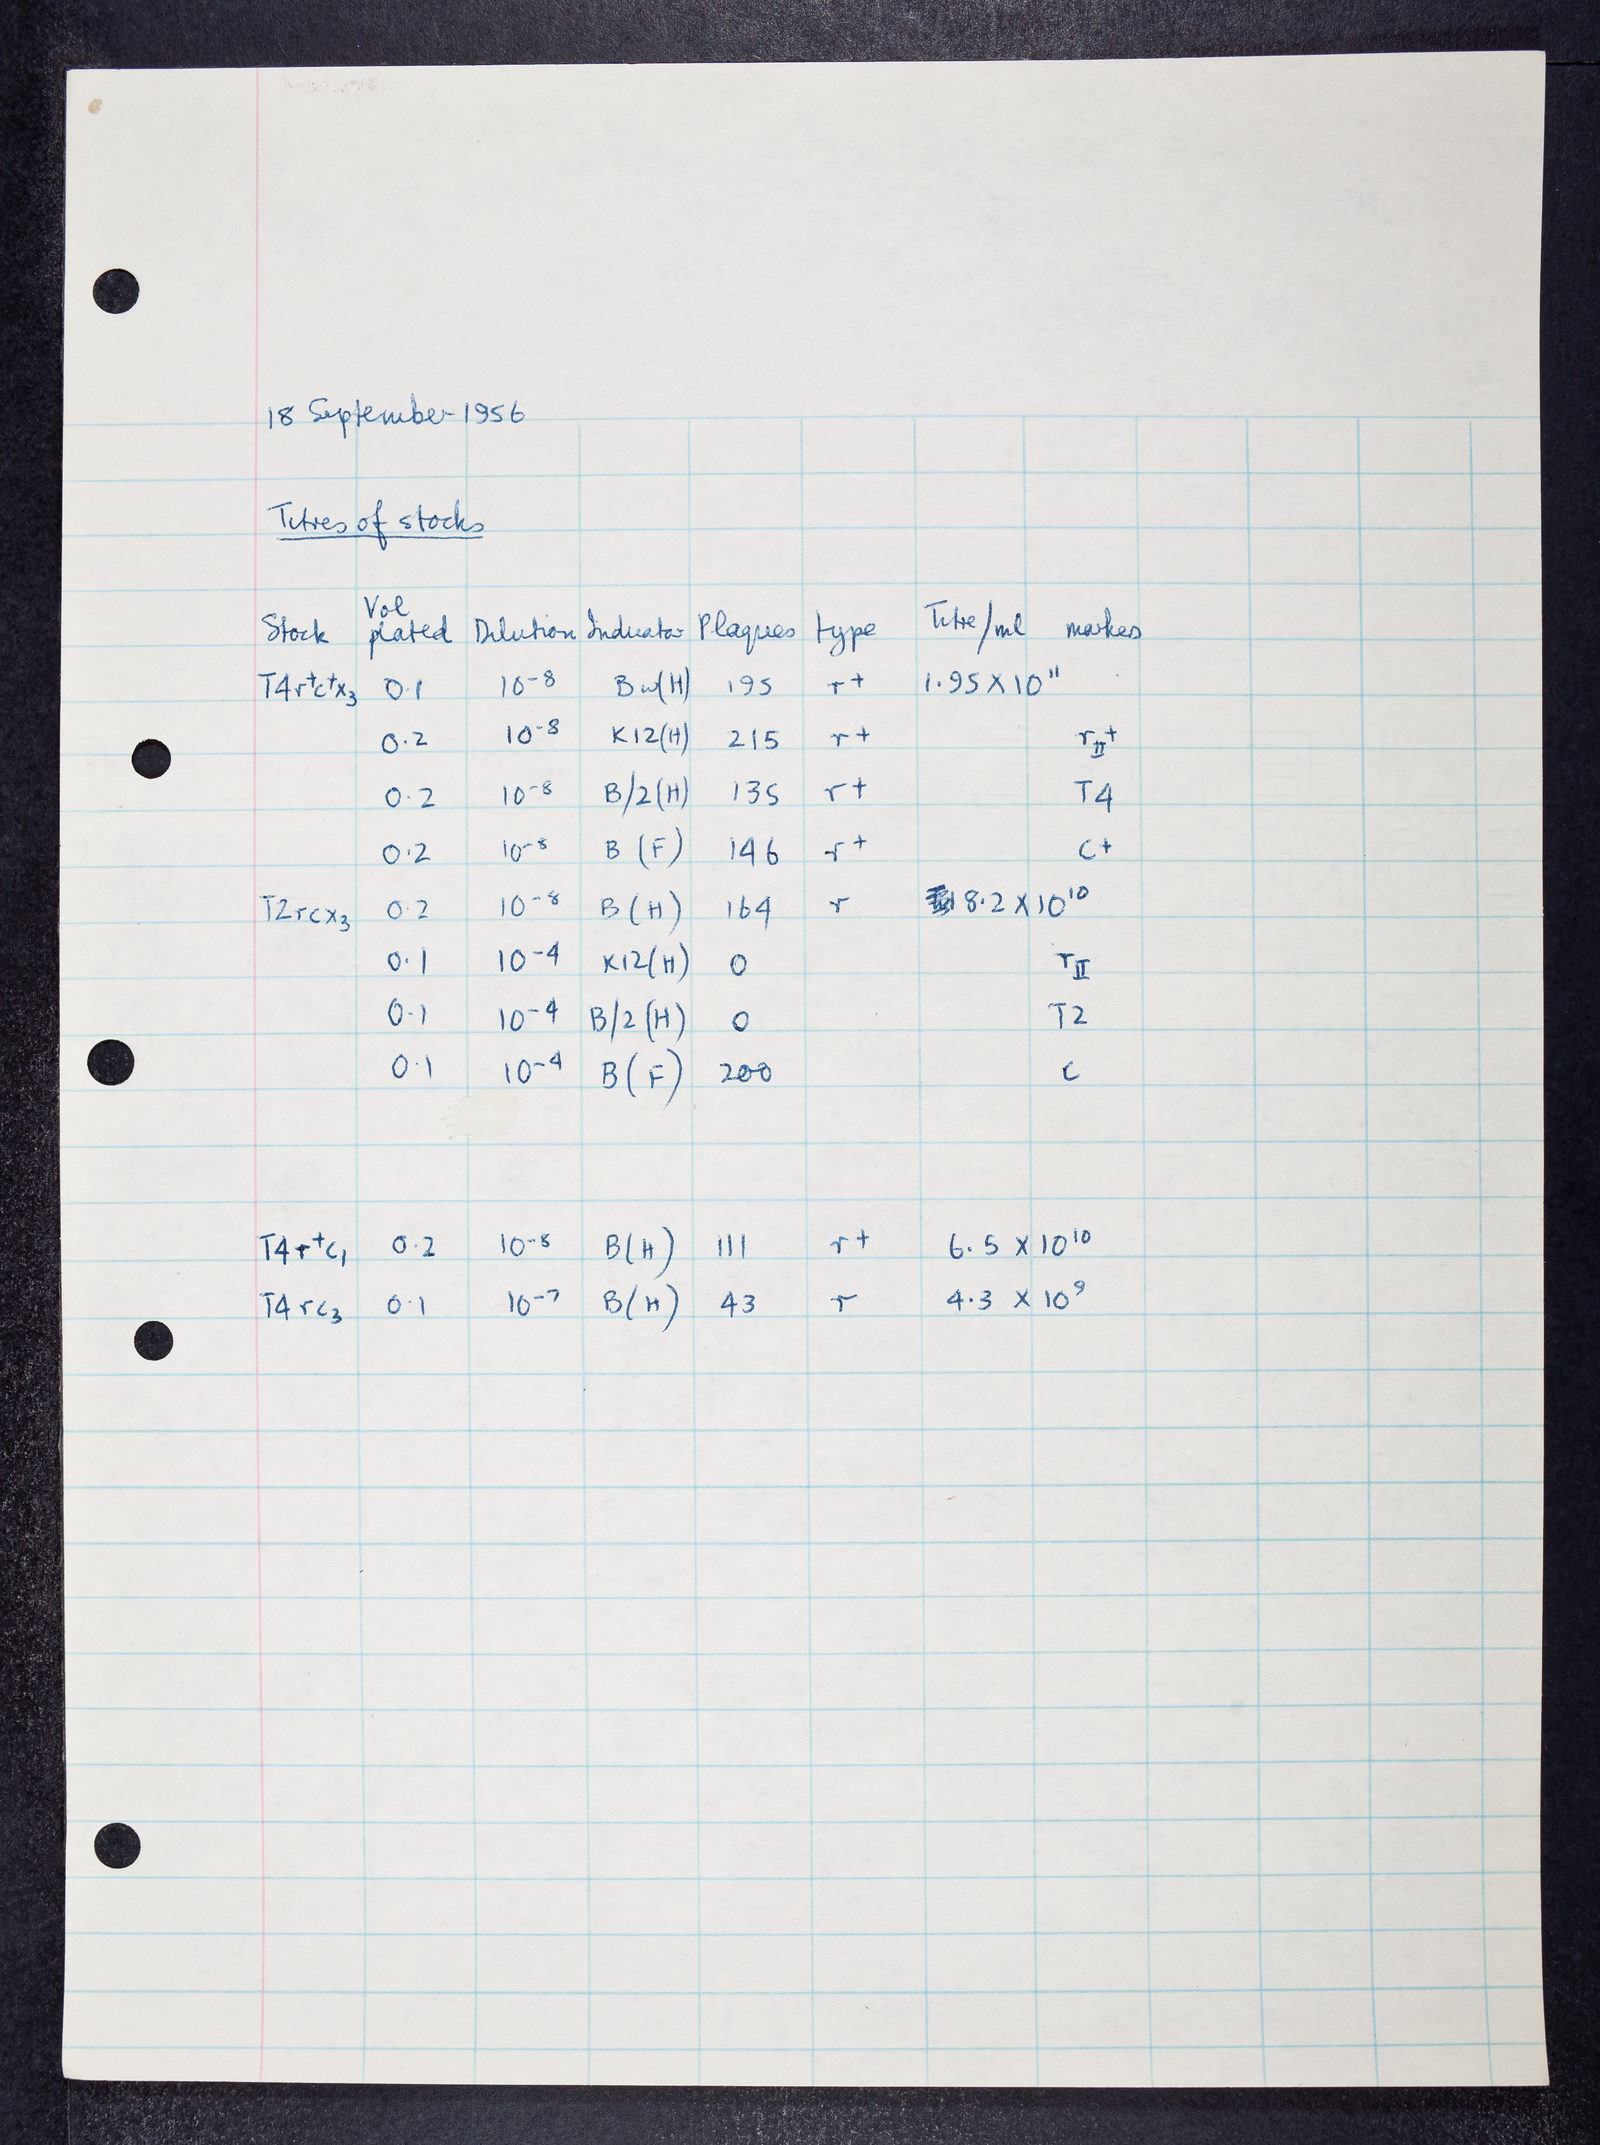 18 September 1956
Titres of stocks
Stock Vol plated Dilution Indicator Plaques type Titre/ml markers
T4r⁺c⁺x₃ 0.1 10⁻⁸ Bw(H) 195 r+ 1.95 X 10¹¹
0.2 10⁻⁸ K12(H) 215 r+ r_II⁺
0.2 10⁻⁸ B/2(H) 135 r+ T4
0.2 10⁻⁸ B (F) 146 r+ c+
T2rcx₃ 0.2 10⁻⁸ B(H) 164 r 8.2 X 10¹⁰
0.1 10⁻⁴ K12(H) 0 r_II
0.1 10⁻⁴ B/2(H) 0 T2
0.1 10⁻⁴ B(F) 200 c
T4r⁺c₁ 0.2 10⁻⁸ B(H) 111 r+ 6.5 X 10¹⁰
T4rc₃ 0.1 10⁻⁷ B(H) 43 r 4.3 X 10⁹